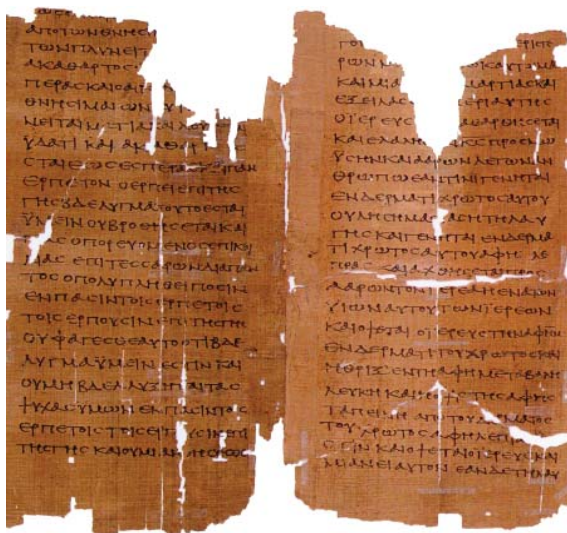 ΑΠΟΤΩΝΘΝΗϹΙ
ΤΩΝΠΛΥΝΕΙΤ
ΑΚΑΘΑΡΤΟϹ
ΠΕΡΑϹΚΑΙΟΑΙ
ΘΝΗϹΙΜΑΙΩΝ
ΝΕΙΤΑΙΜΑΤΙΑΚΑΙΛΟΥ
ΥΔΑΤΙΚΑΙΑΚΑΘΑΡ
ϹΤΑΙΕΩϹΕϹΠΕΡΑϹ ΠΑΝ
ΕΡΠΕΤΟΝΟΕΡΠΕΙΕΠΙΤΗϹ
ΓΗϹΒΔΕΛΥΓΜΑΤΟΥΤΟΕϹΤΑΙ
ΥΜΕΙΝΟΥΒΡΩΘΗϹΕΤΑΙΚΑΙ
ΑϹΟΠΟΡΕΥΟΜΕΝΟϹΕΠΙΚΟΙ
ΛΙΑϹΕΠΙΤΕϹϹΑΡΩΝΔΙΑΠΑΝ
ΤΟϹΟΠΟΛΥΠΛΗΘΕΙΠΟϹΙΝ
ΕΝΠΑϹΙΝΤΟΙϹΕΡΠΕΤΟΙϹ
ΤΟΙϹΕΡΠΟΥϹΙΝΕΠΙΤΗϹΓΗ
ΟΥΦΑΓΕϹΘΕΑΥΤΟΟΤΙΒΔΕ
ΛΥΓΜΑΫΜΕΙΝΕϹΤΙΝΚΑΙ
ΟΥΜΗΒΔΕΛΥΞΗΤΑΙΤΑϹ
ΨΥΧΑϹΥΜΩΝΕΝΠΑϹΙΝΤΟΙϹ
ΕΡΠΕΤΟΙϹΤΟΙϹΕΡΠΟΥϹΙΝΕΠΙ
ΤΗϹΓΗϹΚΑΙΟΥΜΙΑΝ
ΚΑΙΜΙΑ ΑΡΤΙΑϹΚΑΙ
ΕΞΕΙΛΑϹ ΠΕΡΙΑΥΤΗϹ
ΟΪΕΡΕΥϹ ΘΑΡΙϹΘΗϹΕΤΑΙ
ΚΑΙΕΛΑΛΗ Κ̅Ϲ̅ΠΡΟϹΜΩ
ΫϹΗΝΚΑΙΑΑΡΩΝΛΕΓΩΝΑΝ
ΘΡΩΠΩΕΑΝΤΙΝΙΓΕΝΗΤΑΙ
ΕΝΔΕΡΜΑΤΙΧΡΩΤΟϹΑΥΤΟΥ
ΟΥΛΗϹΗΜΑϹΙΑϹΤΗΛΑΥ
ΓΗϹΚΑΙΓΕΝΗΤΑΙΕΝΔΕΡΜΑ
ΤΙΧΡΩΤΟϹΑΥΤΟΥΑΦΗΛΕ
ΠΡΑϹΚΑΙΑΧΘΗϹΕΤΑΙΠΡΟϹ
ΑΑΡΩΝΤΟΝΙΕΡΕΑΗΕΝΑΤΩΝ
ΥΙΩΝΑΥΤΟΥΤΩΝΙΕΡΕΩΝ
ΚΑΙΟΨΕΤΑΙΟΪΕΡΕΥϹΤΗΝΑΦΗΝ
ΕΝΔΕΡΜΑΤΙΤΟΥΧΡΩΤΟϹΚΑΙ
ΗΘΡΙΞΕΝΤΗΑΦΗΜΕΤΑΒΑΛΗ
ΛΕΥΚΗΚΑΙΗΟΨΙϹΤΗϹΑΦΗϹ
ΤΑΠΕΙΝΗΑΠΟΤΟΥΔΕΡΜΑΤΟϹ
ΤΟΥΧΡΩΤΟϹΑΦΗΛΕΠΡΑϹ
ΕϹΤΙΝΚΑΙΟΨΕΤΑΙΟΪΕΡΕΥϹΚΑΙ
ΜΙΑΝΕΙΑΥΤΟΝΕΑΝΔΕΤΗΛΑΥ